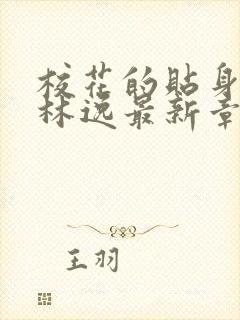 校花的贴身
林逸最新章
王羽